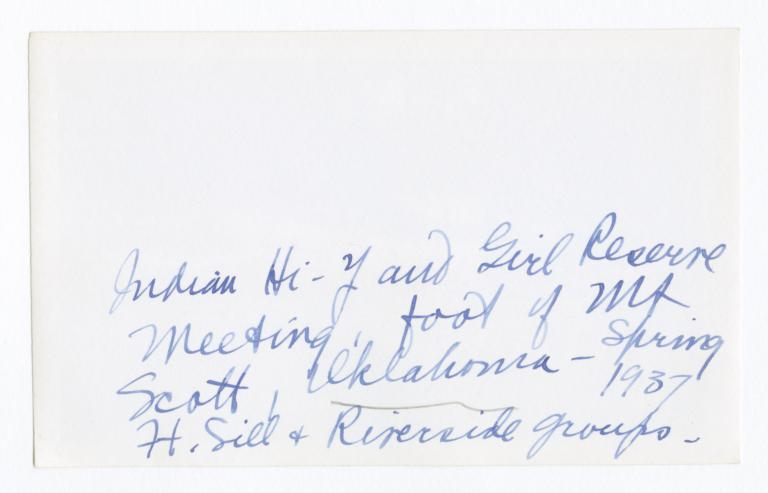 Indian Hi-Y and Girl Reserve
Meeting, foot of Mt
Scott, Oklahoma - Spring
1937
Ft. Sill + Riverside groups -